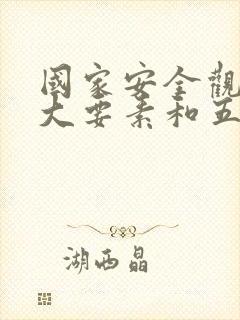 國家安全觀
大要素和五
湖西晶